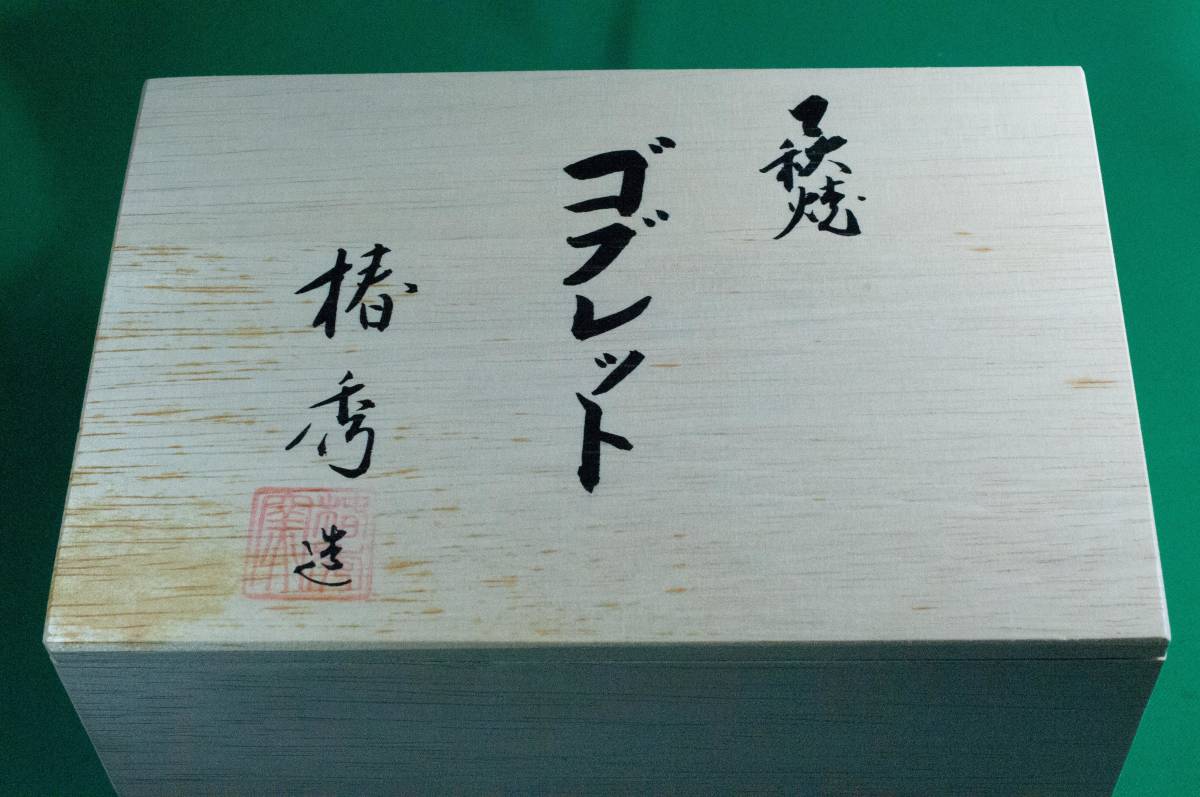 萩焼
ゴブレット
椿秀
造